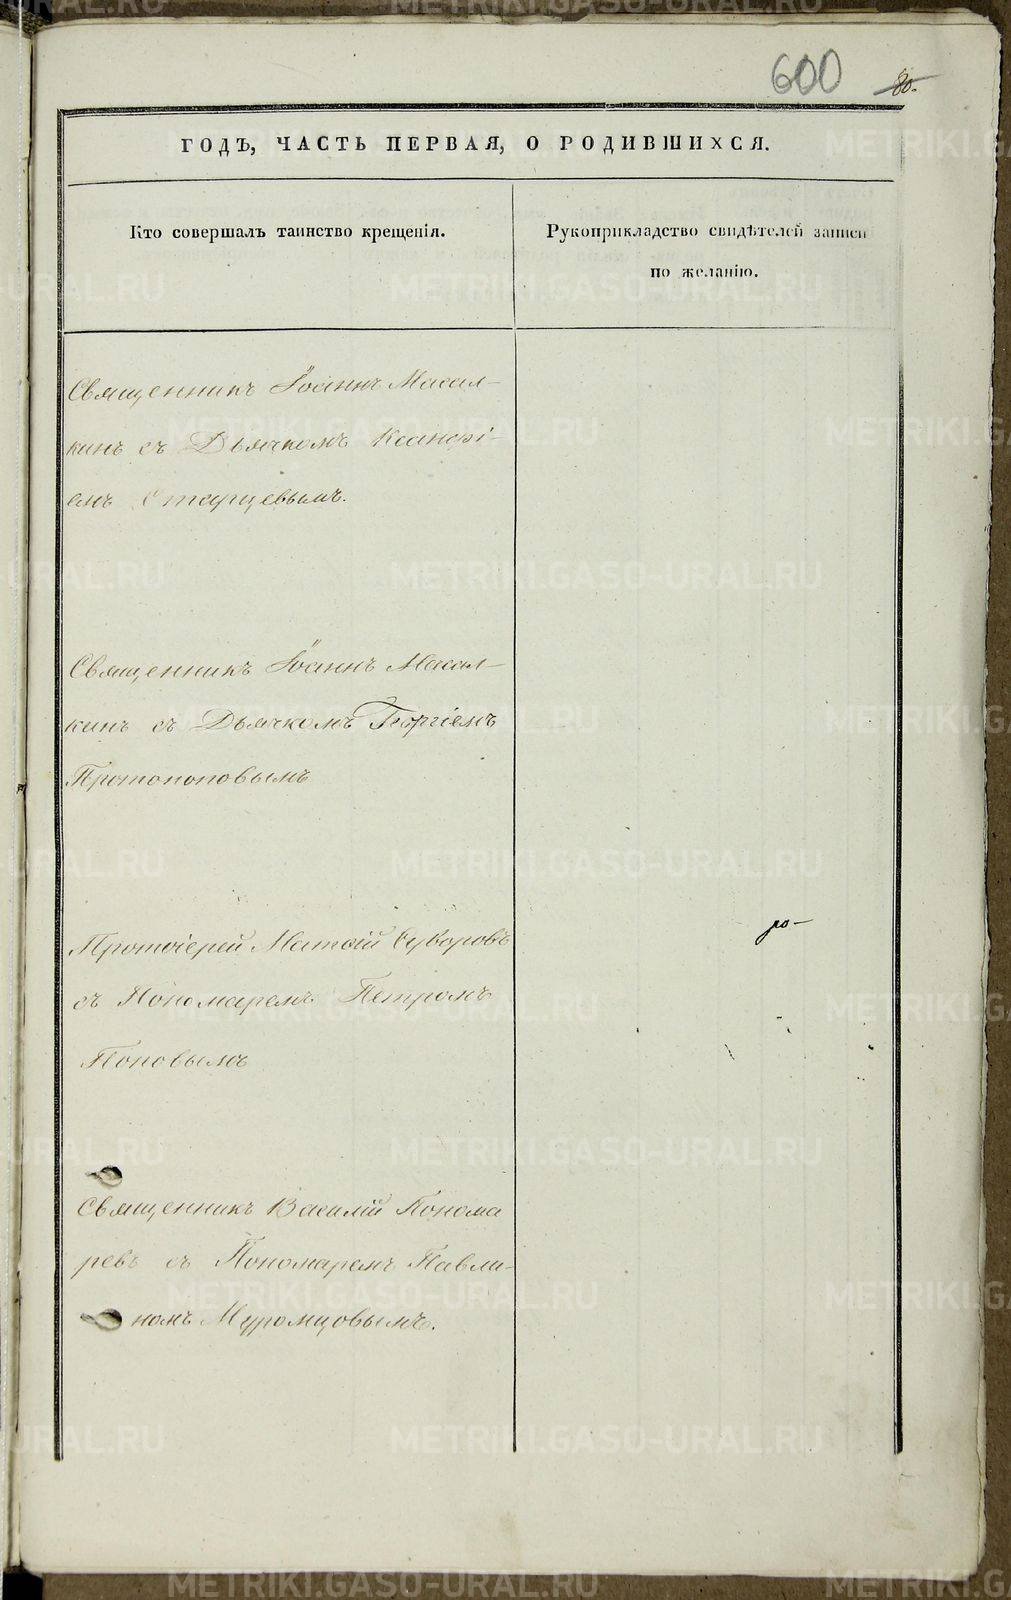 600 80.
ГОДЪ, ЧАСТЬ ПЕРВАЯ, О РОДИВШИХСЯ.
Кто совершалъ таинство крещенія.
Рукоприкладство свидѣтелей записи
по желанію.
Священникъ Іоаннъ Масал-
кинъ съ Дьячкомъ Ксанфі-
емъ Старцевымъ.
Священникъ Іоаннъ Масал-
кинъ съ Дьячкомъ Георгіемъ
Протопоповымъ
Протоіерей Матѳій Суворовъ
съ Пономаремъ Петромъ
Поповымъ
ро-
Священникъ Василій Понома
ревъ съ Пономаремъ Павли-
номъ Муромцовымъ.
METRIKI.GASO-URAL.RU